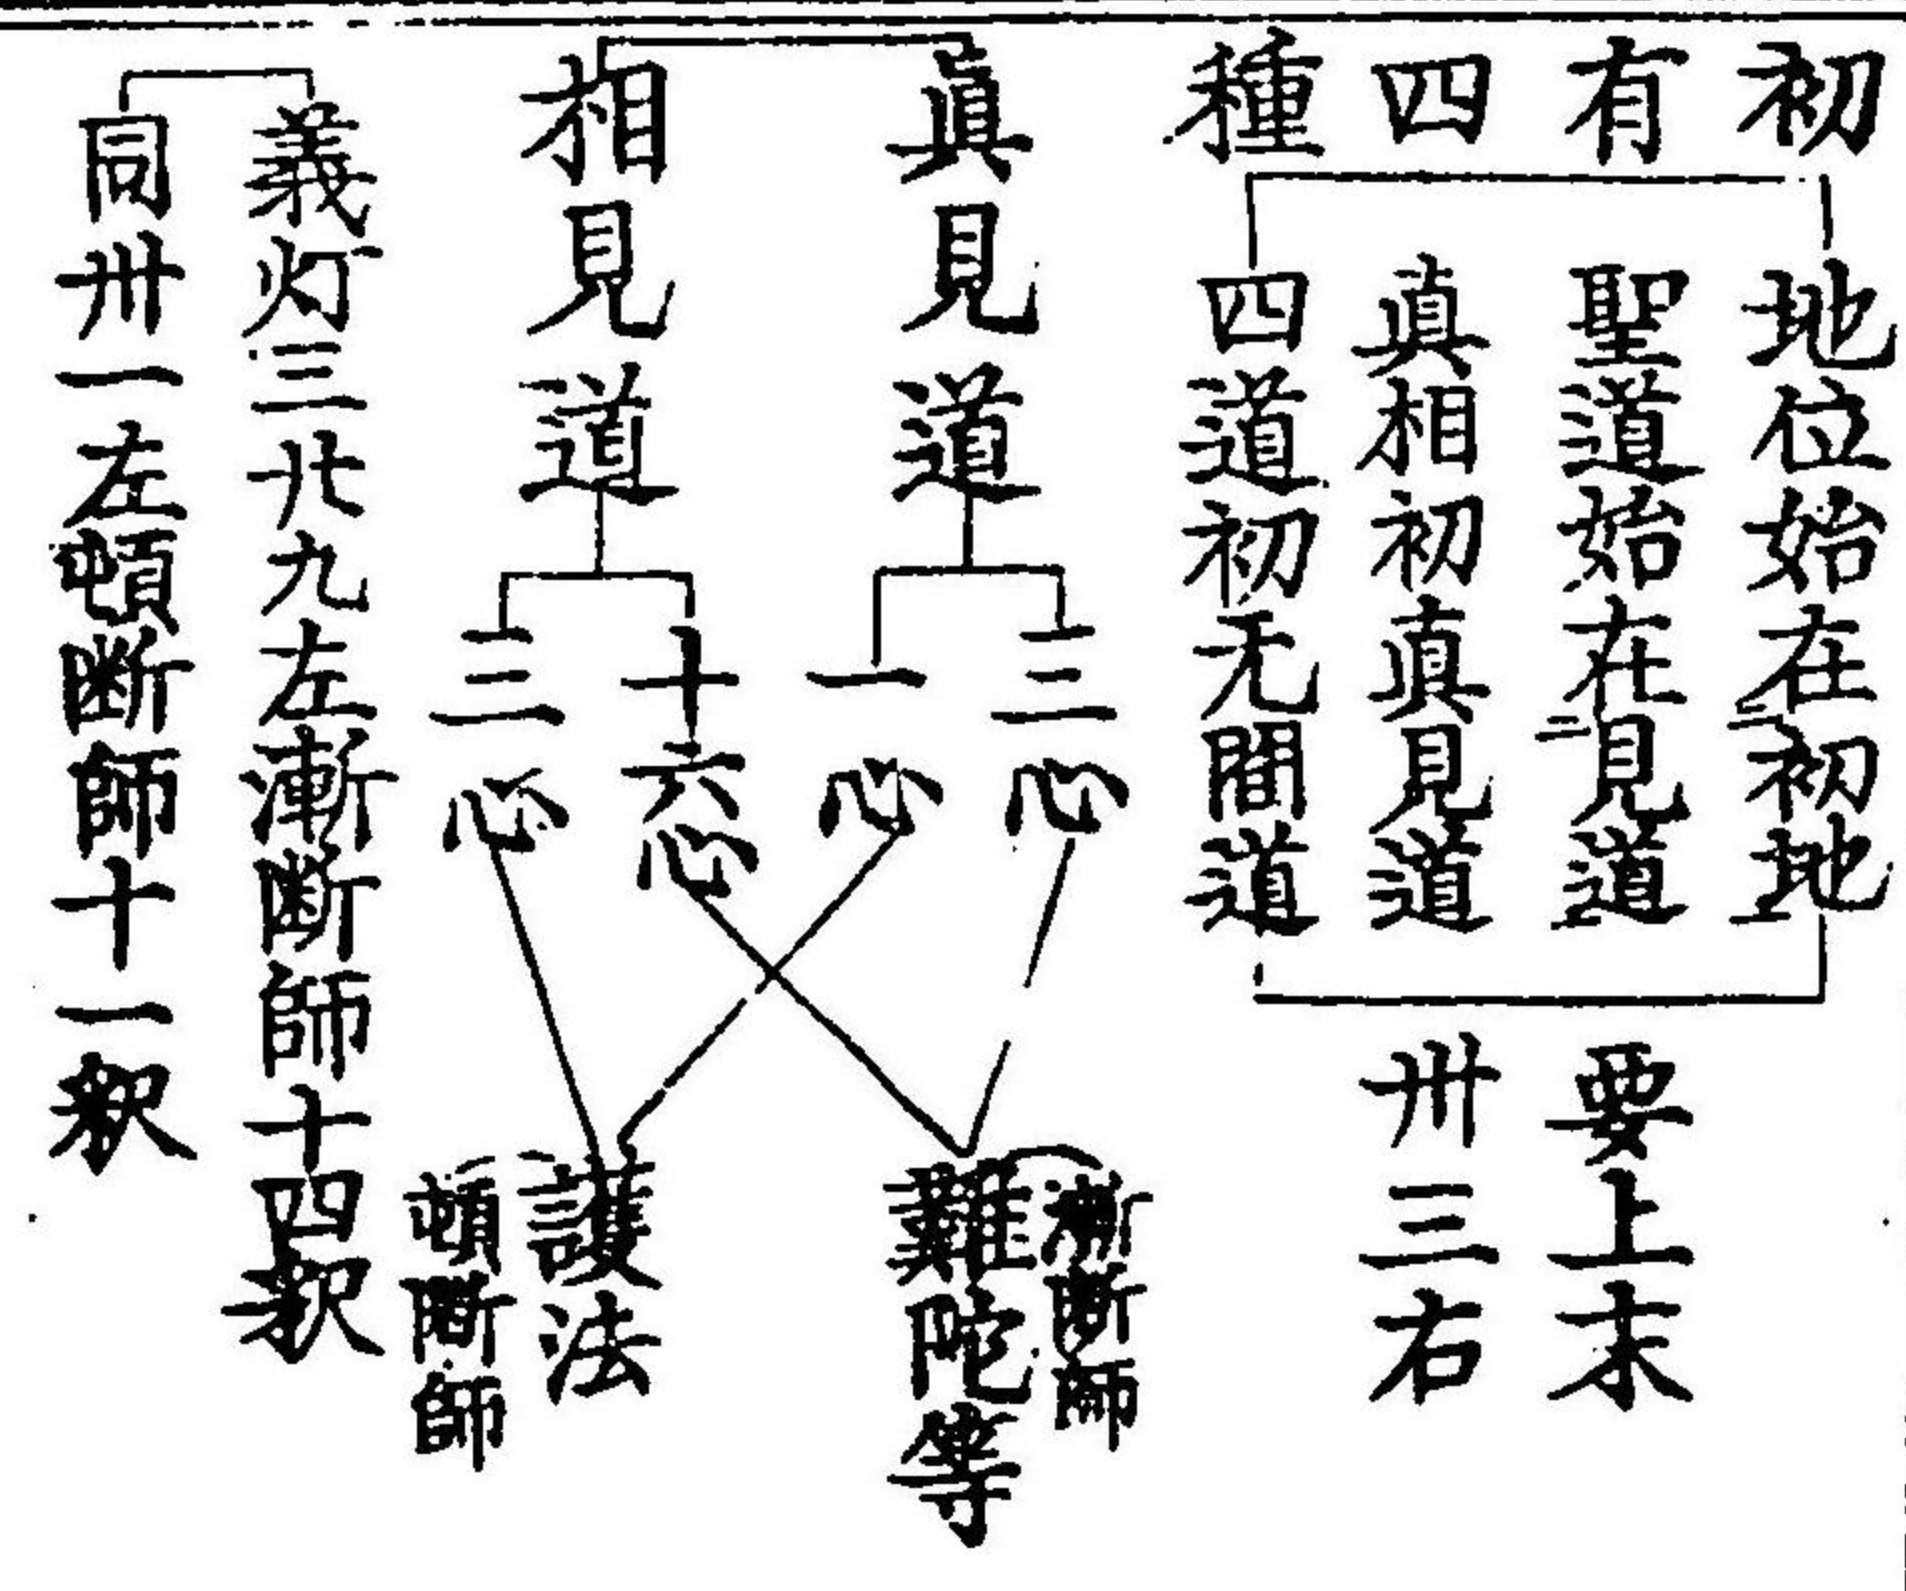 初有四種
地位始在二初地一
聖道始在二見道一
真相初真見道
四道初无間道
要上末
卅三右
眞見道
三心
一心
相見道
十六心
三心
漸断師
難陀等
護法
頓断師
義灯三廿九左漸断師十四釈
同卅一左頓断師十一釈